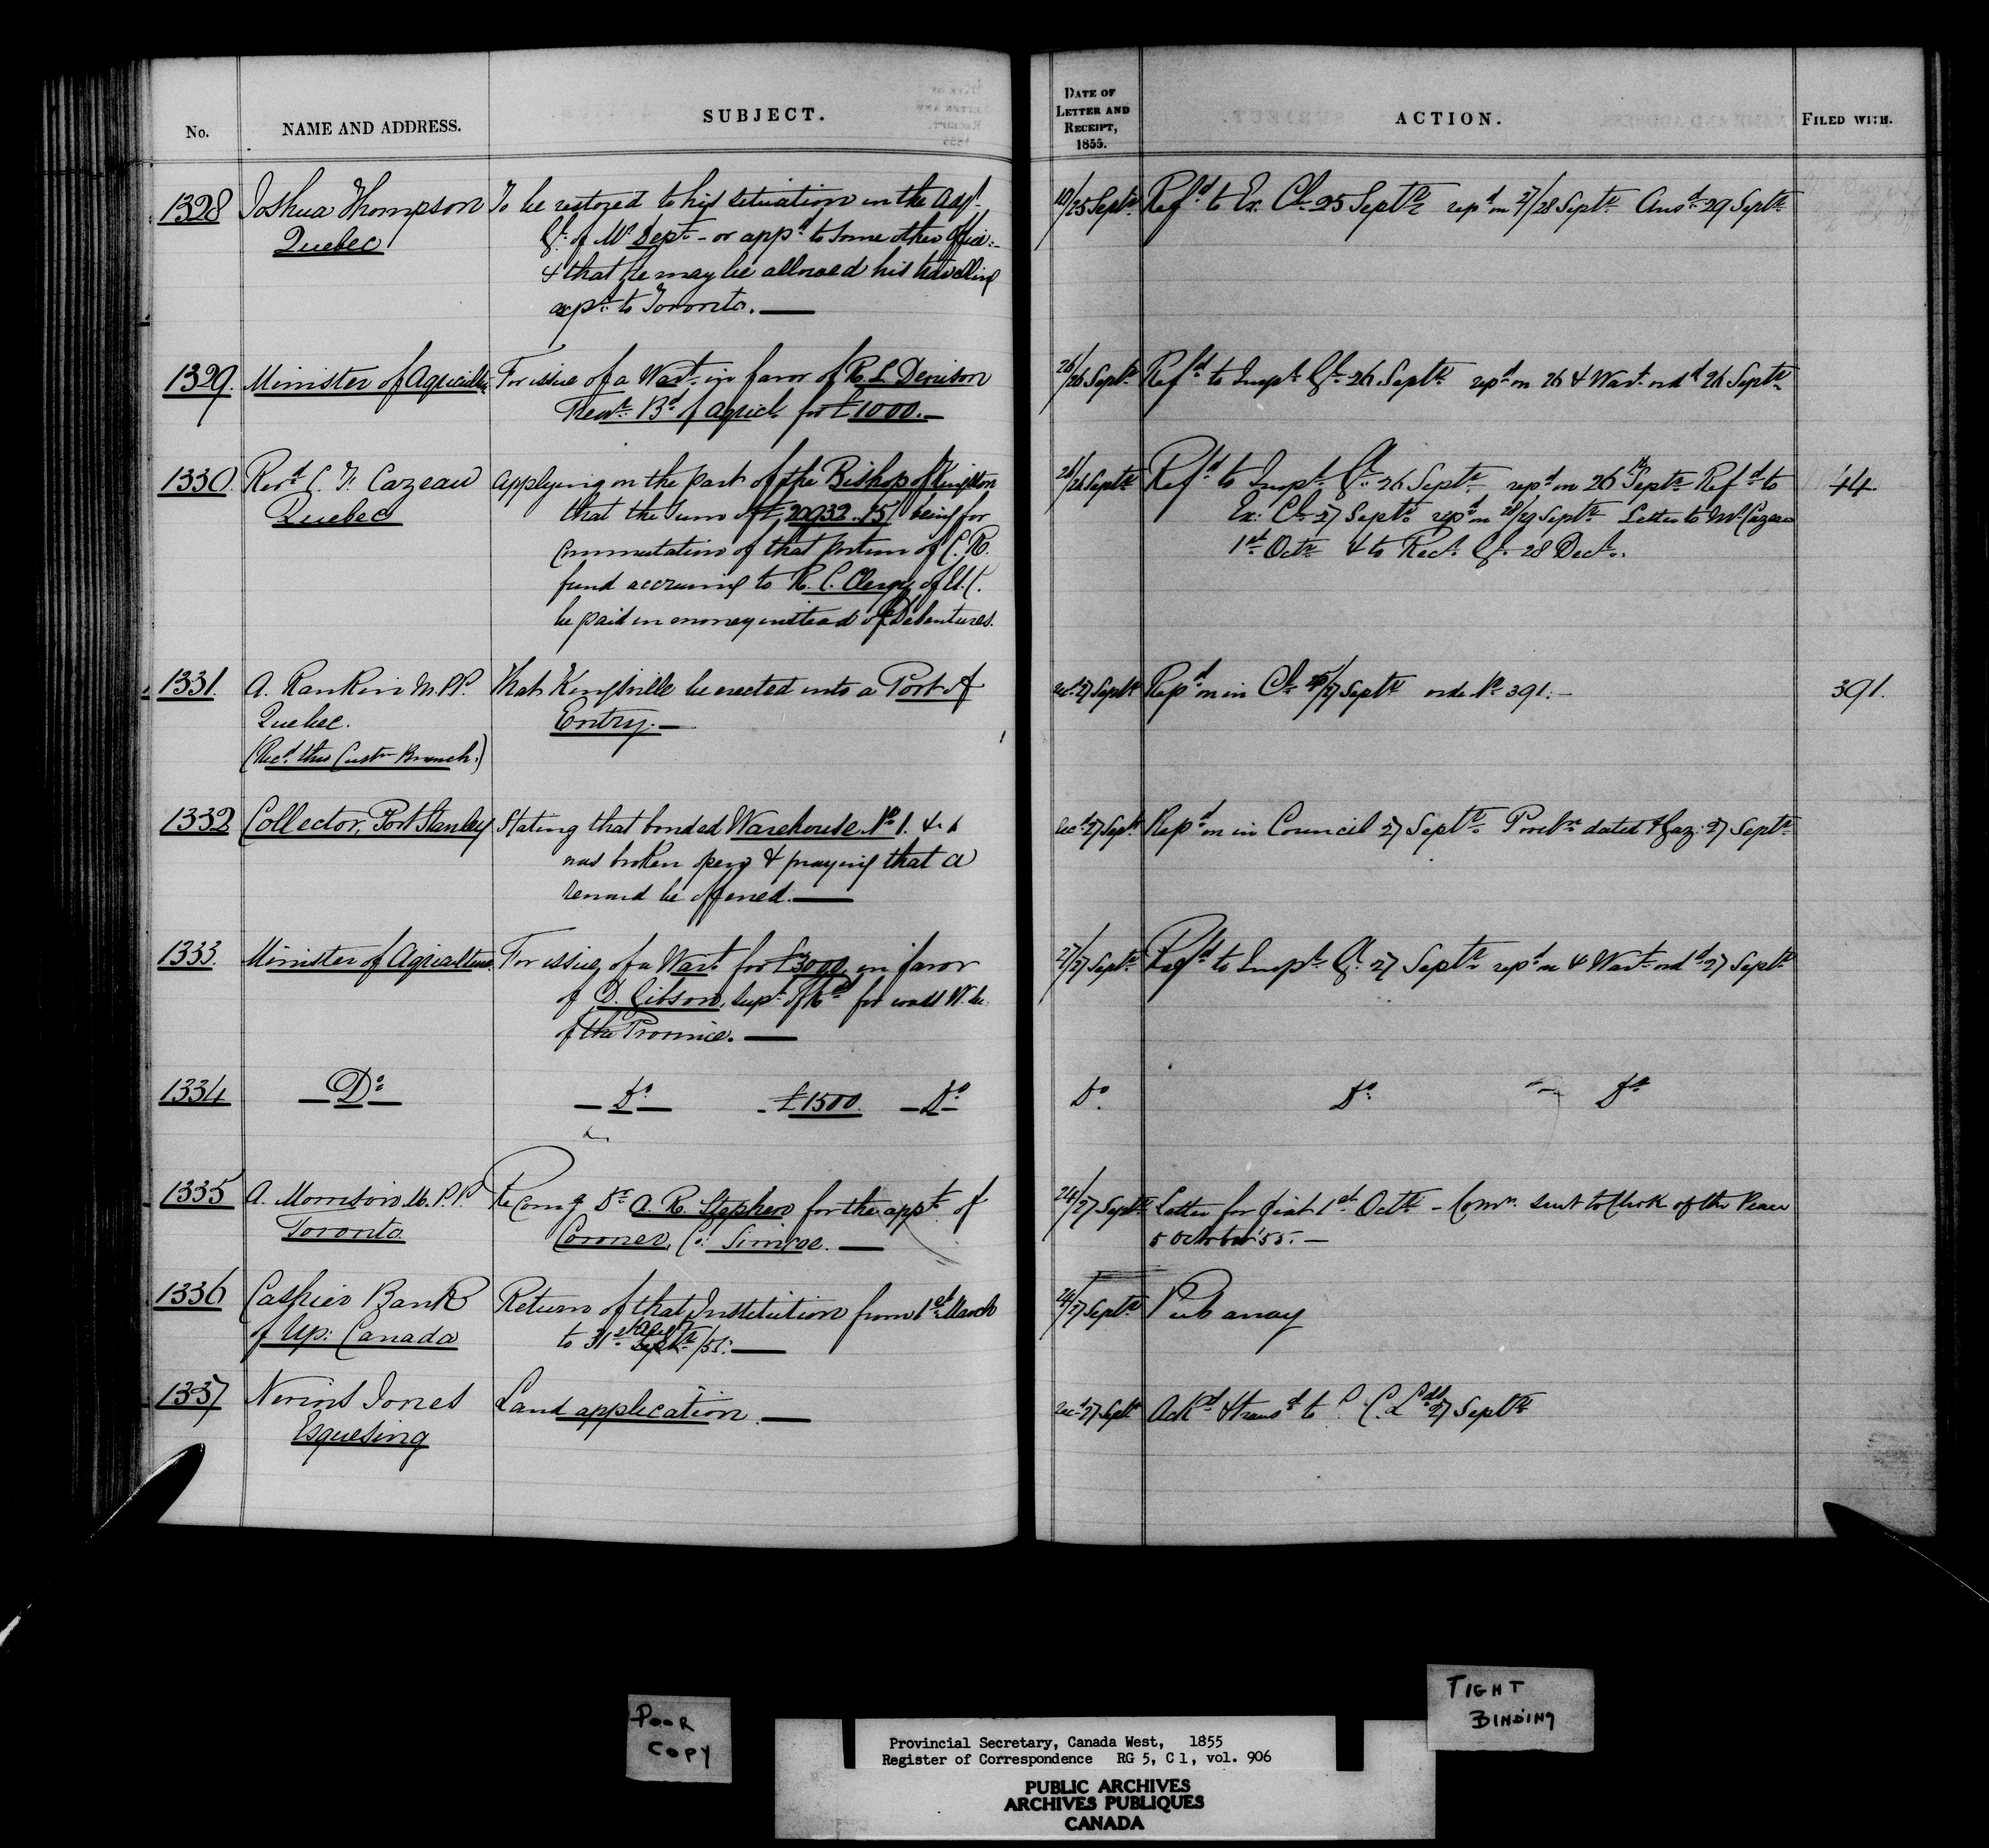 No. NAME AND ADDRESS. SUBJECT. DATE OF LETTER AND RECEIPT, 1855. ACTION. FILED WITH.
1328 Joshua Thompson To be restored to his situation in the
Quebec Dept - or appd to some other office
& that he may be allowed his travelling
exps to Toronto. —
19/25 Septr Refd to Ex. Cl. 25 Septr repd on 27/28 Septr Ansd 29 Septr
1329. Minister of Agricultre For issue of a Wart in favor of R. L. Denison
Treasr Bd of Agricl. for £1000. —
26/26 Septr Refd to Inspr Gl. 26 Septr repd on 26 & Wart ordd 26 Septr
1330. Revd C. F. Cazeau Applying on the part of the Bishop of Kingston
Quebec that the sum of £20932.15/ being for
commutation of that portion of C. R.
fund accruing to R. C. Clergy of U. C.
be paid in money instead of Debentures.
26/26 Septr Refd to Inspr Gl. 26 Septr repd on 26th Septr Refd to 44.
Ex: Cl. 27 Septr repd on 28/29 Septr Letter to Mr Cazeau
1st Octr & to Recr Gl. 28 Decr.
1331. A. Rankin M.P.P. That Kingsville be erected into a Port of
Quebec. Entry. —
(Recd thro Custm Branch.)
Recd 27 Septr Repd on in Cl. 27 Septr vide No 391. — 391.
1332 Collector, Port Stanley Stating that bonded Warehouse No 1.
was broken open & praying that a
reward be offered. —
Recd 27 Septr Repd on in Council 27 Septr Procln dated & Gaz: 27 Septr
1333. Minister of Agriculture For issue of a Wart for £3000, in favor
of D. Gibson, Supt of Rds for roads W. Sec.
of the Province. —
27/27 Septr Refd to Inspr Gl. 27 Septr repd on & Wart ordd 27 Septr
1334 — Do — — Do — £1500. — Do — Do Do Do
1335 A. Morrison M.P.P. Recomg Dr A. R. Stephen for the appt of
Toronto Coroner, Co: Simcoe. —
24/27 Septr Letter for fiat 1st Octr - Comn sent to Clerk of the Peace
5 October '55. —
1336 Cashier Bank Return of that Institution from 1st March
of Up: Canada to 31st Augt Septr /55. —
26/27 Septr Put away
1337 Nevins Jones Land application. —
Esquesing
Recd 27 Septr Ackd & transd to C. C. Lds 27 Septr
POOR
COPY
TIGHT
BINDING
Provincial Secretary, Canada West, 1855
Register of Correspondence RG 5, C 1, vol. 906
PUBLIC ARCHIVES
ARCHIVES PUBLIQUES
CANADA